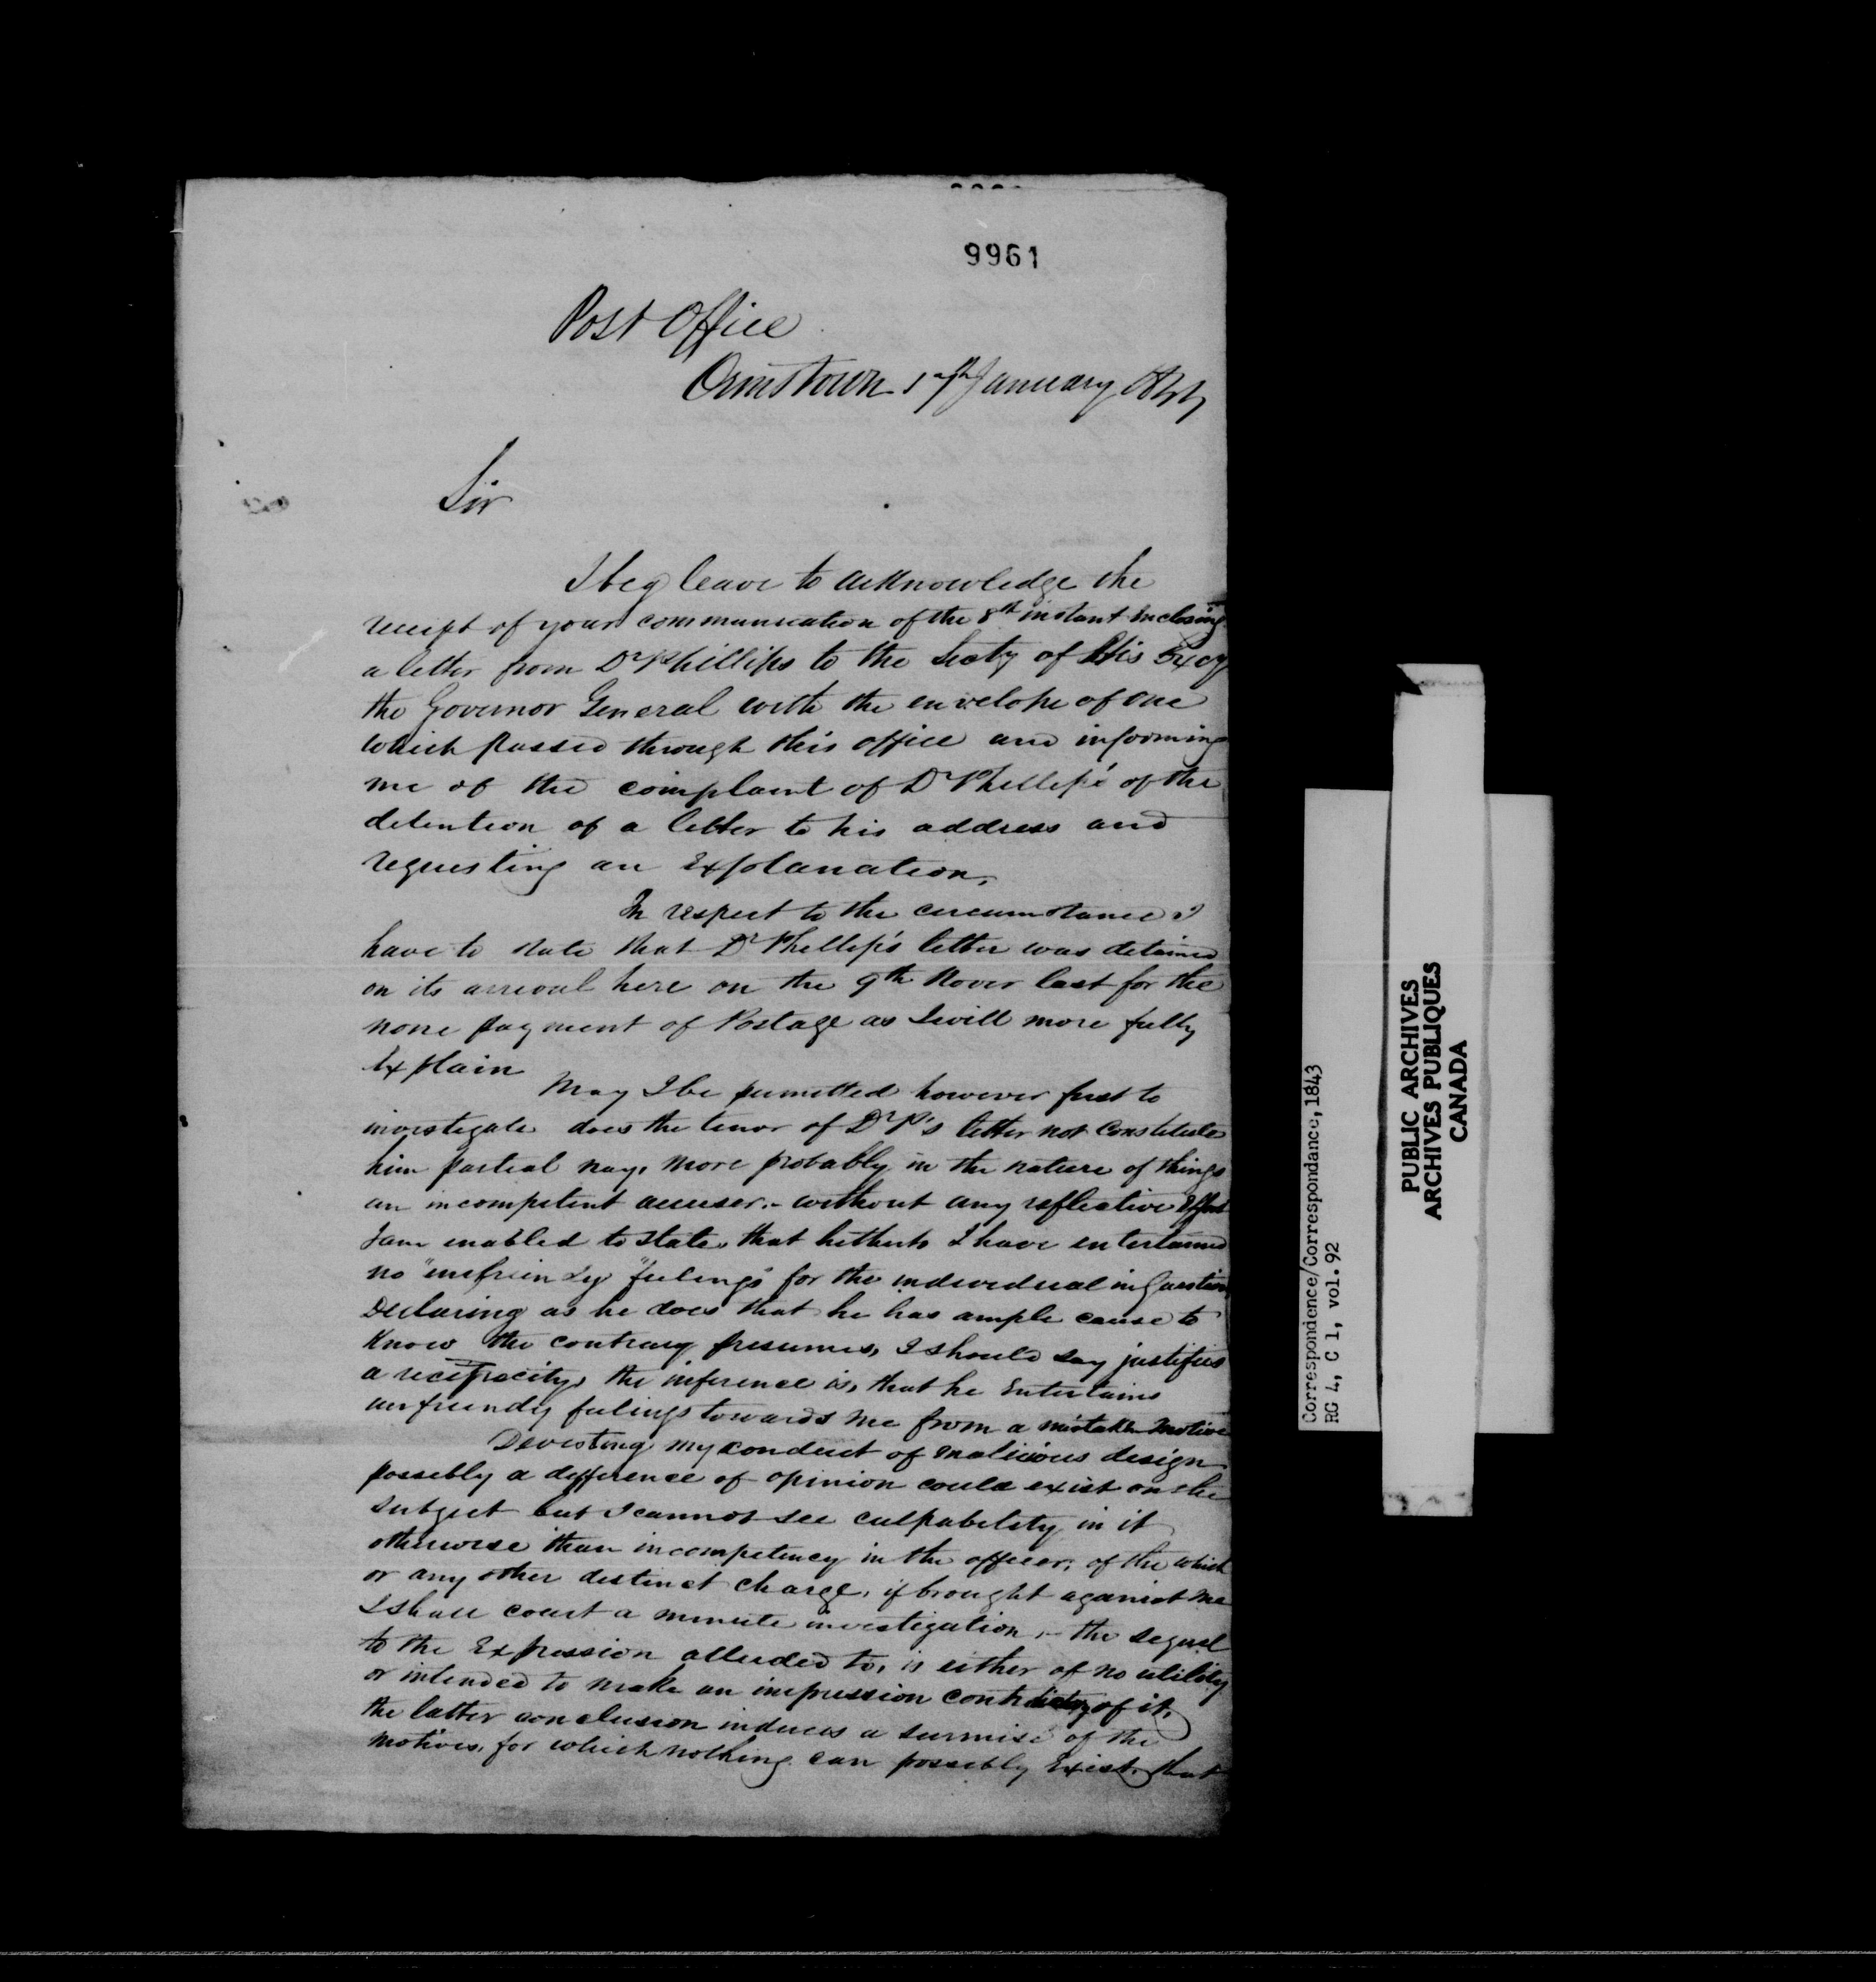 9961
Post Office
Ormstown 17th January 1844
Sir
I beg leave to acknowledge the
receipt of your communication of the 8th instant inclosing
a letter from Dr Phillips to the Secty of His Excy
the Governor General with the envelope of one
which passed through this office and informing
me of the complaint of Dr Phillips of the
detention of a letter to his address and
requesting an Explanation,
In respect to the circumstance I
have to state that Dr Phillip's letter was detained
on its arrival here on the 9th Novr last for the
none payment of Postage as I will more fully
Explain
May I be permitted however first to
investigate does the tenor of Dr P's letter not constitute
him partial nay, more probably in the nature of things
an incompetent accuser.- without any reflective Effort
I am enabled to state, that hitherto I have entertained
no "unfriendly" feelings for the individual in Question
Declaring as he does that he has ample cause to
Know the contrary presumes, I should say justifies
a reciprocity, the inference is, that he Entertains
unfriendly feelings towards me from a mistaken motive
Devesting my conduct of malicious design
possibly a difference of opinion could exist on the
subject but I cannot see culpability in it
otherwise than incompetency in the officer; of the which
or any other distinct charge, if brought against me
I shall court a minute investigation,- the sequel
to the Expression alluded to, is either of no utility
or intended to make an impression contradictory of it,
the latter conclusion induces a surmise of the
motives, for which nothing can possibly Exist, that
Correspondence/Correspondance,1843
RG 4, C 1, vol.92
PUBLIC ARCHIVES
ARCHIVES PUBLIQUES
CANADA